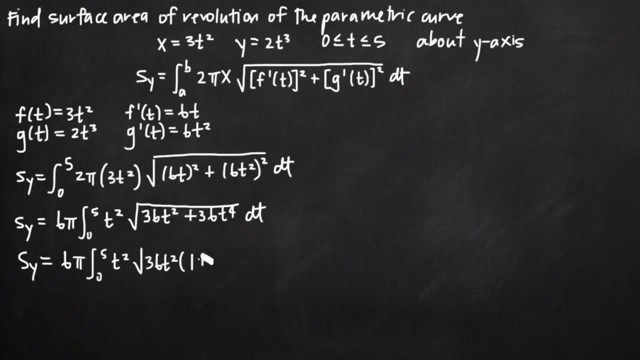 Find surface area of revolution of the parametric curve
x = 3t² y = 2t³ 0 ≤ t ≤ 5 about y-axis
Sy = ∫ₐᵇ 2πx √([f'(t)]² + [g'(t)]²) dt
f(t) = 3t² f'(t) = 6t
g(t) = 2t³ g'(t) = 6t²
Sy = ∫₀⁵ 2π(3t²) √((6t)² + (6t²)²) dt
Sy = 6π ∫₀⁵ t² √(36t² + 36t⁴) dt
Sy = 6π ∫₀⁵ t² √36t²(1